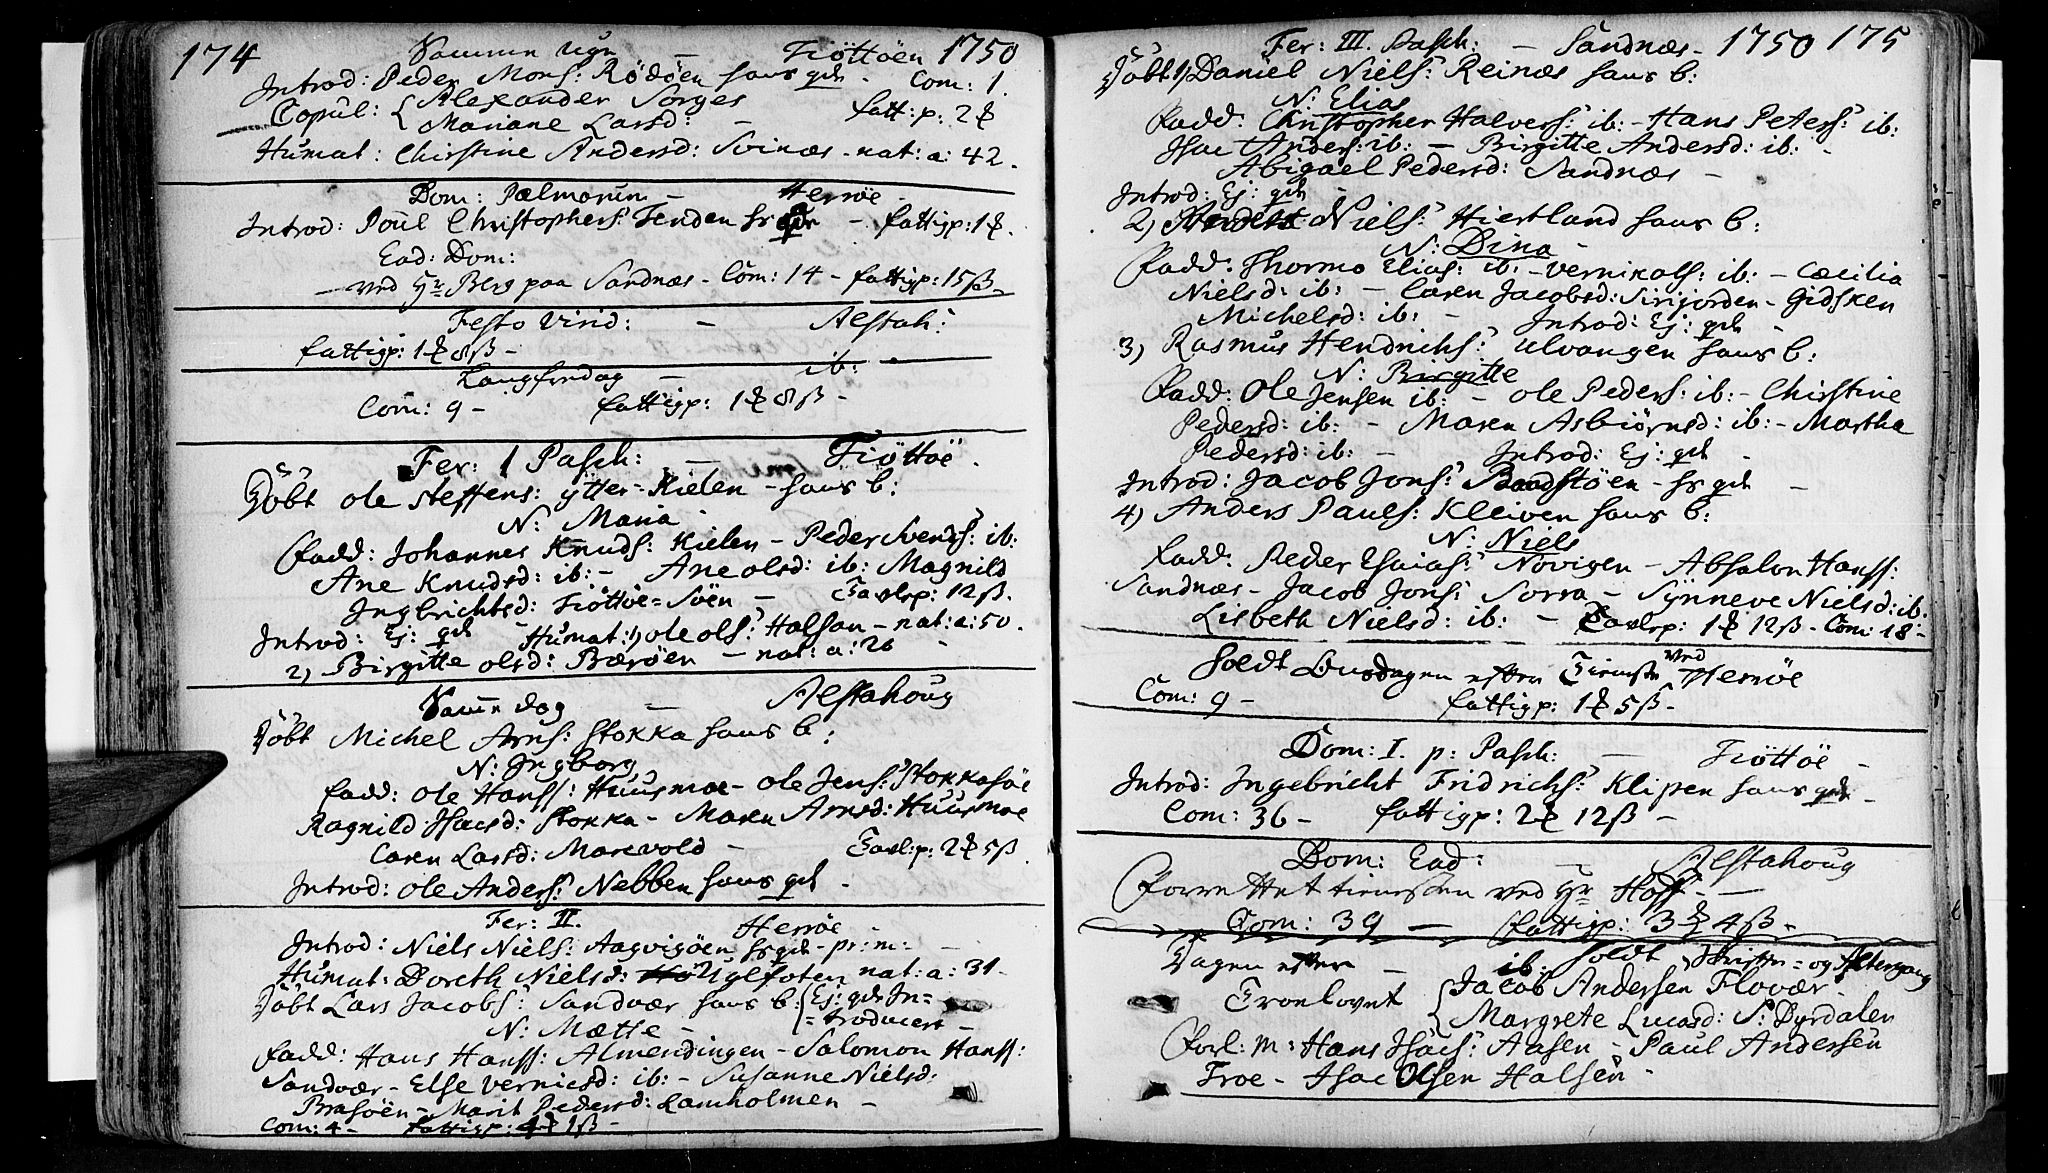 174 Samme ugn — Tiöttöen 1750
Introd: Peder Mons: Rödöen hans qde Com: 1.
Copul: { Alexander Sorges
Mariane Larsd: — fatt: p: 2 ꝑ
Humat: Christine Andersd: Svinæs - nat: a: 42.
Dom: Palmarum — Herröe
Introd: Poul Christophers: Tenden hs qde — fattigp: 1 ꝑ.
Ead: Dom:
ved Hr Berg paa Sandnæs - Com: 14 - fattigp: 15 ß -
Festo Virid: — Alstah:
fattigp: 1 ꝑ 8 ß -
Langfredag — ib:
Com: 9 - fattigp: 1 ꝑ 8 ß -
Fer: 1 Pasch: — Tiöttöe.
Döbt Ole Steffens: ytter-Kielen - hans b:
N: Maria
Fadd: Johannes Knuds: Kielen - Peder Svends: ib:
Ane Knudsd: ib: - Ane Olsd: ib: Magnild
Ingbrichtsd: Tiöttöe-Söen — Tavlep: 12 ß.
Introd: Ej: qde Humat: 1) Ole Ols: Halsan - nat: a: 50.
2) Birgitte Olsd: Bæröen - nat: a: 26
Samme dag — Alstahoug
Döbt Michel Arns: Stokka hans b:
N: Ingborg
Fadd: Ole Hanss: Huusmoe - Ole Jens: Stokkasöe
Ragnild Isacsd: Stokka - Maren Arnsd: Huusmoe
Caren Larsd: Marevold — Tavl: p: 2 ꝑ 5 ß
Introd: Ole Anders: Nebben hans qde.
Fer: II. Herröe
Introd: Niels Niels: Aagvigöen hs qde - pr: m:
Humat: Doreth Nielsd: Ylfoten nat: a: 31 -
Döbt Lars Jacobs: Sandvær hans b: { Ej: qde In=
N: Mætte = troducert —
Fadd: Hans Hanss: Almendingen - Salomon Hanss:
Sandvær - Else Verniesd: ib: - Susanne Nielsd:
Brasöen - Marit Pedersd: Lamholmen —
Com: 4 - fattigp: 1 ß -
Fer: III. Pasch: — Sandnæs - 1750 175
Döbt 1) Daniel Niels: Reinæs hans b:
N: Elias
Fadd: Christopher Halvers: ib: - Hans Peters: ib:
Isac Anders: ib: - Birgitte Andersd: ib: -
Abigael Pedersd: Sandnæs —
Introd: Ej: qde
2) Niels: Hiertland hans b:
N: Dina
Fadd: Thormo Elias: ib: - Vernikals: ib: - Cæcilia
Nielsd: ib: - Caren Jacobsd: Sirijorden - Gidsken
Michelsd: ib: - Introd: Ej: qde -
3) Rasmus Hendrichs: Ulvangen hans b:
N: Birgitte
Fadd: Ole Jensen ib: - Ole Peders: ib: - Christine
Pedersd: ib: - Maren Asbiörnsd: ib: - Martha
Pedersd: ib: - Introd: Ej: qde -
Introd: Jacob Jons: Baadstöen - hs qde —
4) Anders Pauls: Kleiven hans b:
N: Niels
Fadd: Peder Esaias: Növigen - Absalon Hanss:
Sandnæs - Jacob Jons: Sorra - Synneve Nielsd: ib:
Lisbeth Nielsd: ib: — Tavlep: 1 ꝑ 12 ß - Com: 18 -
Holdt Onsdagen efter Tieneste ved Herröe
Com: 9 - fattigp: 1 ꝑ 5 ß -
Dom: I. p: Pasch: — Tiöttöe -
Introd: Ingebricht Fridrichs: Klipen hans qde -
Com: 36 - fattigp: 2 ꝑ 12 ß -
Dom: Ead: — Alstahoug
Forrettet tienesten ved Hr Hoff -
Com: 39 — fattigp: 3 ꝑ 4 ß -
Dagen efter — ib: holdt Skrifte= og Altergang
Troelovet { Jacob Andersen Flovær
Margrete Lucasd: S: Dyrdalen
Forl: M: Hans Isacs: Aasen - Paul Andersen
Troe - Isac Olsen Halsen -